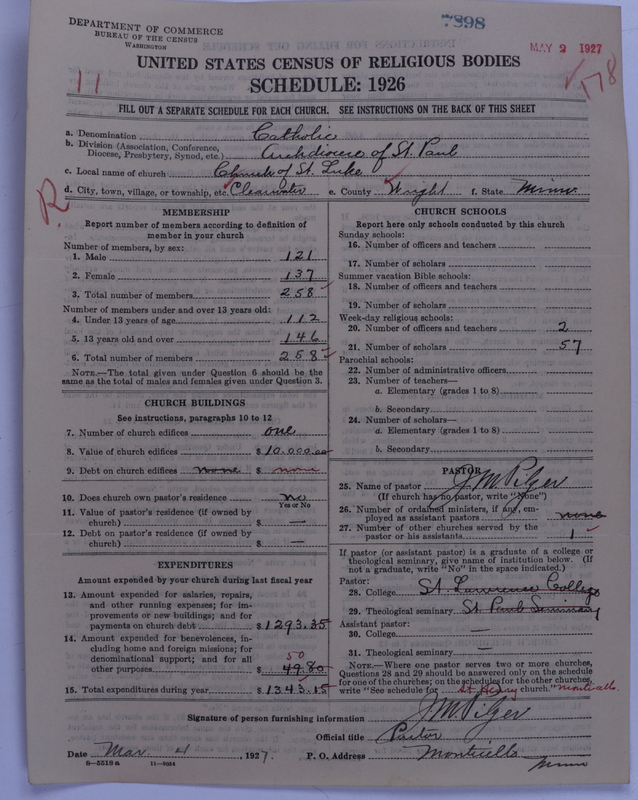 DEPARTMENT OF COMMERCE
BUREAU OF THE CENSUS
WASHINGTON
7898
MAY 2 1927
178
11
UNITED STATES CENSUS OF RELIGIOUS BODIES
SCHEDULE: 1926
FILL OUT A SEPARATE SCHEDULE FOR EACH CHURCH. SEE INSTRUCTIONS ON THE BACK OF THIS SHEET
a. Denomination Catholic
b. Division (Association, Conference, Diocese, Presbytery, Synod, etc.) Archdiocese of St. Paul
c. Local name of church Church of St. Luke
d. City, town, village, or township, etc. Clearwater e. County Wright f. State Minn.
R
MEMBERSHIP
Report number of members according to definition of
member in your church
Number of members, by sex:
1. Male 121
2. Female 137
3. Total number of members 258
Number of members under and over 13 years old:
4. Under 13 years of age 112
5. 13 years old and over 146
6. Total number of members 258
NOTE.—The total given under Question 6 should be the
same as the total of males and females given under Question 3.
CHURCH BUILDINGS
See instructions, paragraphs 10 to 12
7. Number of church edifices one
8. Value of church edifices $ 10.000.00
9. Debt on church edifices none $ none
10. Does church own pastor's residence no
Yes or No
11. Value of pastor's residence (if owned by
church) $ —
12. Debt on pastor's residence (if owned by
church) $ —
EXPENDITURES
Amount expended by your church during last fiscal year
13. Amount expended for salaries, repairs,
and other running expenses; for im-
provements or new buildings; and for
payments on church debt $ 1293.35
14. Amount expended for benevolences, in-
cluding home and foreign missions; for
denominational support; and for all
50
other purposes $ 49.80
15. Total expenditures during year $ 1343.15
CHURCH SCHOOLS
Report here only schools conducted by this church
Sunday schools:
16. Number of officers and teachers
17. Number of scholars
Summer vacation Bible schools:
18. Number of officers and teachers
19. Number of scholars
Week-day religious schools:
20. Number of officers and teachers 2
21. Number of scholars 57
Parochial schools:
22. Number of administrative officers
23. Number of teachers—
a. Elementary (grades 1 to 8)
b. Secondary
24. Number of scholars—
a. Elementary (grades 1 to 8)
b. Secondary
PASTOR
25. Name of pastor J M Pilger
(If church has no pastor, write "None")
26. Number of ordained ministers, if any, em-
ployed as assistant pastors none
27. Number of other churches served by the
pastor or his assistants 1
If pastor (or assistant pastor) is a graduate of a college or
theological seminary, give name of institution below. (If
not a graduate, write "No" in the space indicated.)
Pastor:
28. College St. Lawrence College
29. Theological seminary St Paul Seminary
Assistant pastor:
30. College —
31. Theological seminary —
NOTE.—Where one pastor serves two or more churches,
Questions 28 and 29 should be answered only on the schedule
for one of the churches; on the schedules for the other churches,
write "See schedule for St. Henry church." Monticello
Signature of person furnishing information J. M. Pilger
Official title Pastor
Date Mar 4, 1927. P. O. Address Monticello
Minn
8-5518a 11-9034